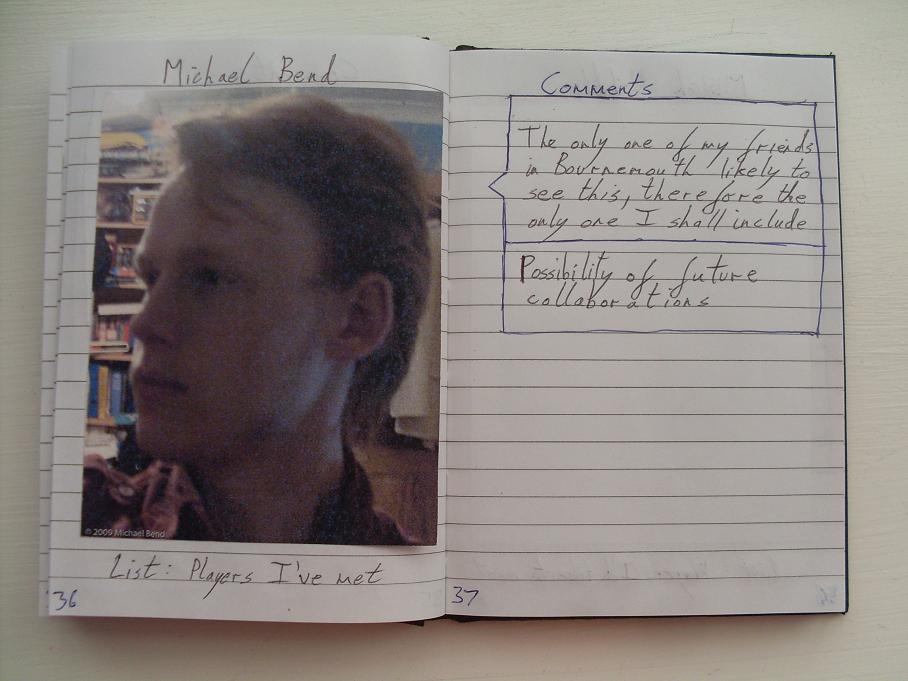 Michael Bend
© 2009 Michael Bend
List: Players I've met
36
Comments
The only one of my friends
in Bournemouth likely to
see this, therefore the
only one I shall include
Possibility of future
collaborations
37